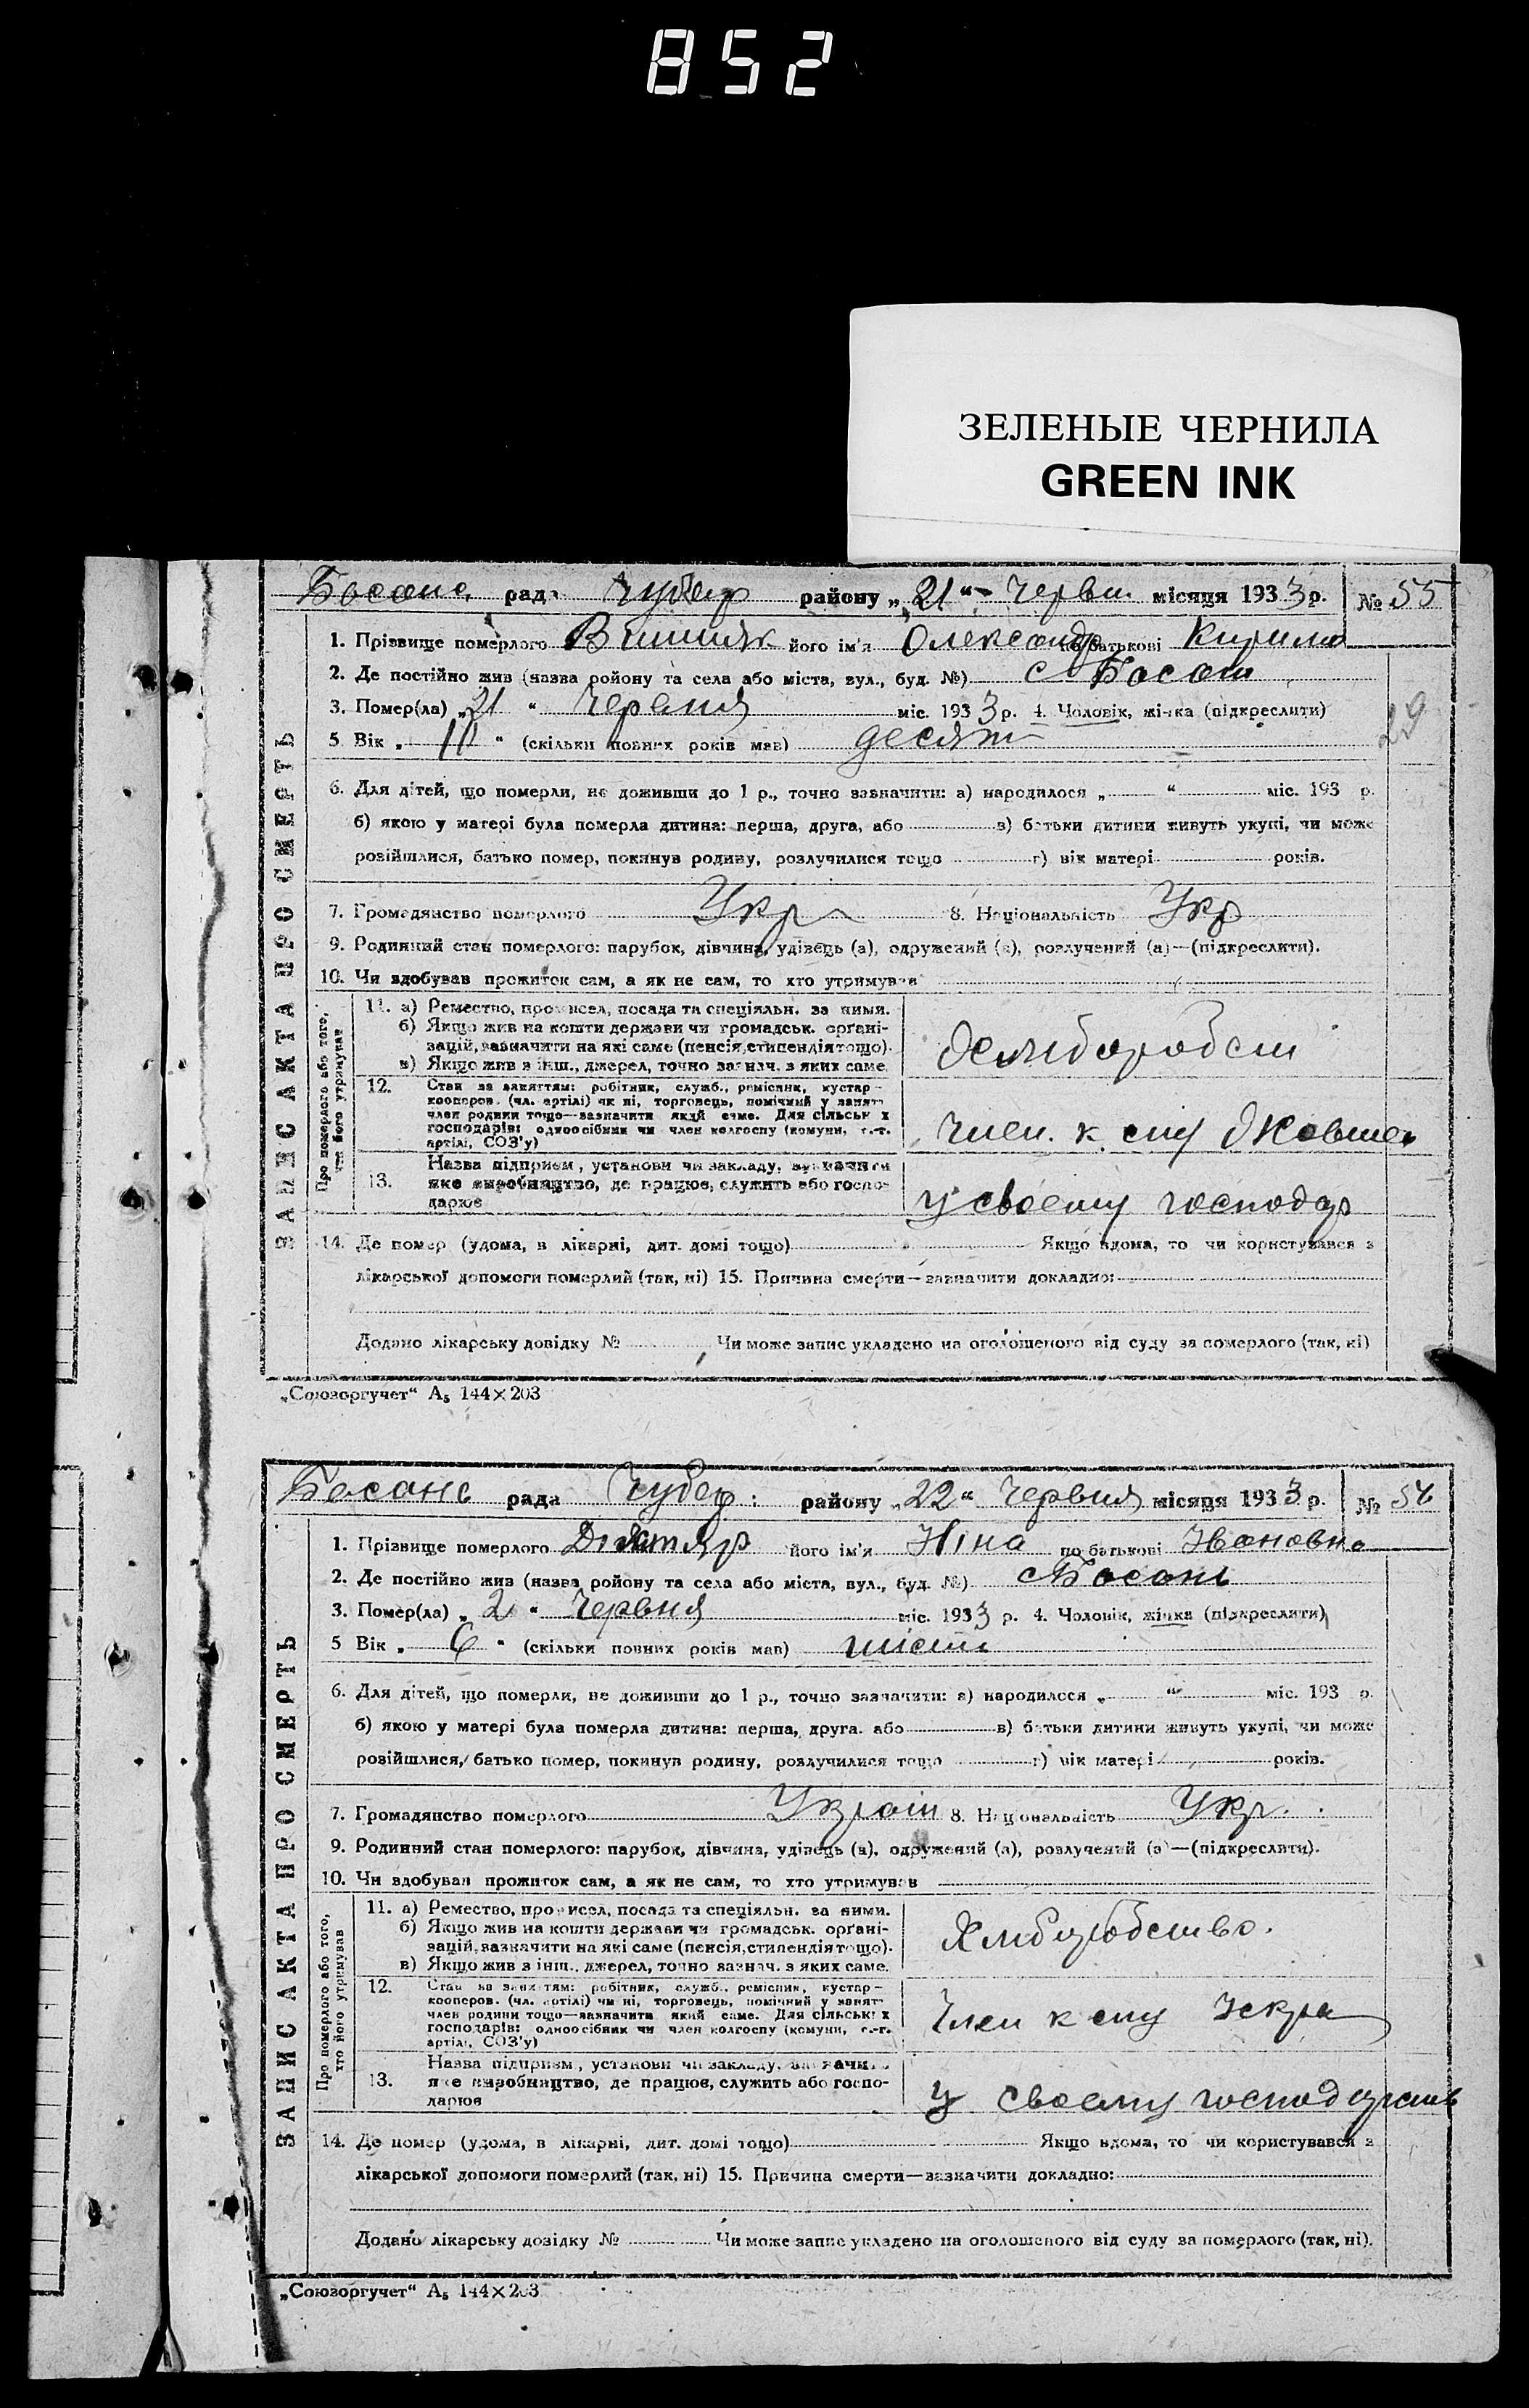 852
ЗЕЛЕНЫЕ ЧЕРНИЛА
GREEN INK
рада Чубар району „21“ Червня місяця 1933 р. № 55
1. Прізвище померлого Вишняк його ім'я Олександр по батькові Кирило
2. Де постійно жив (назва ройону та села або міста, вул., буд. №) с Босань
3. Помер(ла) „21“ Червня міс. 1933 р. 4. Чоловік, жінка (підкреслити)
29
5 Вік „10“ (скільки повних років мав) десять
6. Для дітей, що померли, не доживши до 1 р., точно зазначити: а) народилося „ “ міс. 193 р.
б) якою у матері була померла дитина: перша, друга, або в) батьки дитини живуть укупі, чи може
розійшлися, батько помер, покинув родину, розлучилися тощо г) вік матері років.
7. Громадянство померлого Укр 8. Національність Укр
9. Родинний стан померлого: парубок, дівчина, удівець (а), одружений (а), розлучений (а)—(підкреслити).
10. Чи здобував прожиток сам, а як не сам, то хто утримував
ЗАПИС АКТА ПРО СМЕРТЬ
Про померлого або того, хто його утримував
11. а) Ремество, промисел, посада та спеціяльн. за ними.
б) Якщо жив на кошти держави чи громадськ. орґані-
зацій, зазначити на які саме (пенсія, стипендія тощо).
в) Якщо жив з інш., джерел, точно зазнач. з яких саме.
12. Стан за заняттям: робітник, служб., ремісник, кустар-
кооперов. (чл. артілі) чи ні, торговець, помічний у занят.
член родини тощо—зазначити який саме. Для сільськ х
господарів: одноосібник чи член колгоспу (комуни, с.-г.
артілі, СОЗ'у)
Член. к спу Жовтен
13. Назва підприєм, установи чи закладу, зазначити
яке виробництво, де працює, служить або госпо-
дарює
у своему господар
14. Де помер (удома, в лікарні, дит. домі тощо) Якщо вдома, то чи користувався з
лікарської допомоги померлий (так, ні) 15. Причина смерти—зазначити докладно:
Додано лікарську довідку № Чи може запис укладено на оголошеного від суду за померлого (так, ні)
„Союзоргучет“ А₅ 144×203
рада Чубар: району „22“ Червня місяця 1933 р. № 56
1. Прізвище померлого його ім'я Ніна по батькові Ивановна
2. Де постійно жив (назва ройону та села або міста, вул., буд. №) с Босань
3. Помер(ла) „2“ Червня міс. 1933 р. 4. Чоловік, жінка (підкреслити)
5 Вік „6“ (скільки повних років мав) шість
6. Для дітей, що померли, не доживши до 1 р., точно зазначити: а) народилося „ “ міс. 193 р.
б) якою у матері була померла дитина: перша, друга, або в) батьки дитини живуть укупі, чи може
розійшлися, батько помер, покинув родину, розлучилися тощо г) вік матері років.
7. Громадянство померлого Україн 8. Національність Укр.
9. Родинний стан померлого: парубок, дівчина, удівець (а), одружений (а), розлучений (а)—(підкреслити).
10. Чи здобував прожиток сам, а як не сам, то хто утримував
ЗАПИС АКТА ПРО СМЕРТЬ
Про померлого або того, хто його утримував
11. а) Ремество, промисел, посада та спеціяльн. за ними.
б) Якщо жив на кошти держави чи громадськ. орґані-
зацій, зазначити на які саме (пенсія, стипендія тощо).
в) Якщо жив з інш., джерел, точно зазнач. з яких саме.
Хлиборобство.
12. Стан за заняттям: робітник, служб., ремісник, кустар-
кооперов. (чл. артілі) чи ні, торговець, помічний у занят.
член родини тощо—зазначити який саме. Для сільськ х
господарів: одноосібник чи член колгоспу (комуни, с.-г.
артілі, СОЗ'у)
Член к спу Искра
13. Назва підприєм, установи чи закладу, зазначити
яке виробництво, де працює, служить або госпо-
дарює
у своему господарств
14. Де помер (удома, в лікарні, дит. домі тощо) Якщо вдома, то чи користувався з
лікарської допомоги померлий (так, ні) 15. Причина смерти—зазначити докладно:
Додано лікарську довідку № Чи може запис укладено на оголошеного від суду за померлого (так, ні).
„Союзоргучет“ А₅ 144×203